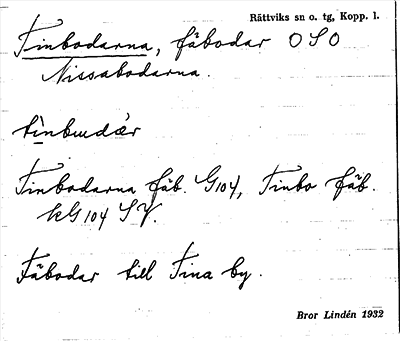 Rättviks sn o. tg, Kopp. l.
Finbodarna, fäbodar OSO
Nissabodarna.
finbudær
Finbodarna fäb. G104, Finbo fäb.
kG 104 SV.
Fäbodar till Fina by.
Bror Lindén 1932